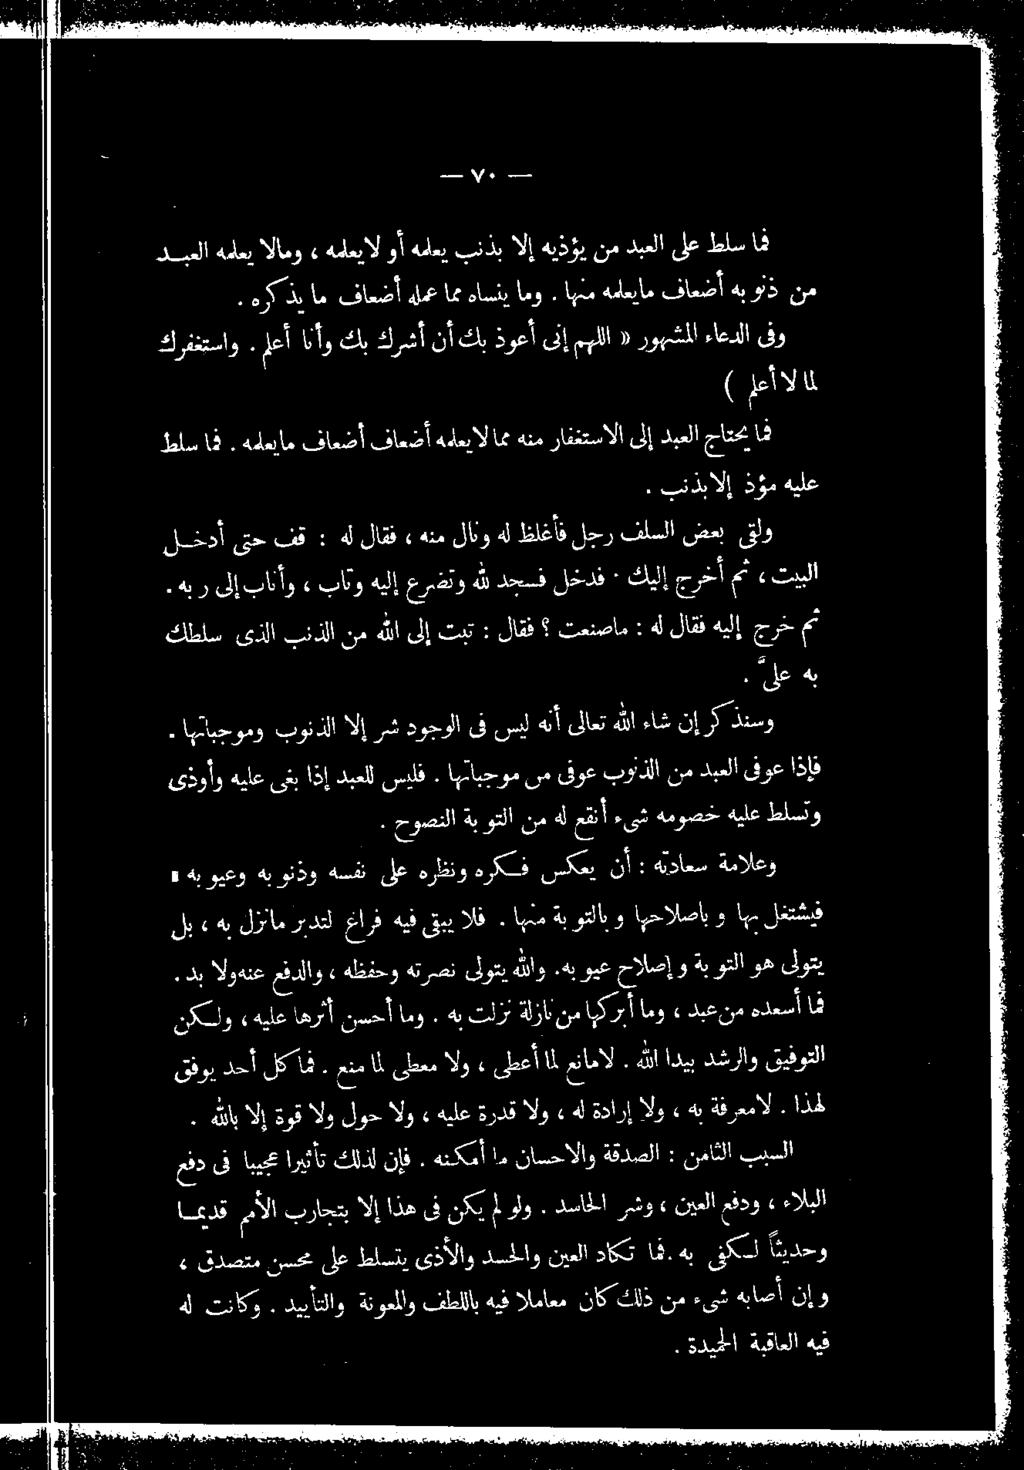 — ٧٠ —
فما سلط على العبد من يؤذيه إلا بذنب يعلمه أو لا يعلمه ، ومالا يعلمه العبد
من ذنوبه أضعاف مايعلمه منها . وما ينساه مما عمله أضعاف ما يذكره .
وفى الدعاء المشهور « اللهم إنى أعوذ بك أن أشرك بك وأنا أعلم . واستغفرك
لما لا أعلم )
فما يحتاج العبد إلى الاستغفار منه مما لا يعلمه أضعاف أضعاف مايعلمه . فما سلط
عليه مؤذ إلا بذنب .
ولقى بعض السلف رجل فأغلظ له ونال منه ، فقال له : قف حتى أدخل
البيت ، ثم أخرج إليك . فدخل فسجد لله وتضرع إليه وتاب ، وأناب إلى ربه .
ثم خرج إليه فقال له : ماصنعت ؟ فقال : تبت إلى الله من الذنب الذى سلطك
به علىَّ .
وسنذكر إن شاء الله تعالى أنه ليس فى الوجود شر إلا الذنوب وموجباتها .
فإذا عوفى العبد من الذنوب عوفى من موجباتها . فليس للعبد إذا بغى عليه وأوذى
وتسلط عليه خصومه شىء أنفع له من التوبة النصوح .
وعلامة سعادته : أن يعكس فكره ونظره على نفسه وذنوبه وعيوبه .
فيشتغل بها وباصلاحها وبالتوبة منها . فلا يبقى فيه فراغ لتدبر مانزل به ، بل
يتولى هو التوبة وإصلاح عيوبه . والله يتولى نصرته وحفظه ، والدفع عنه ولا بد .
فما أسعده من عبد ، وما أبركها من نازلة نزلت به . وما أحسن أثرها عليه ، ولكن
التوفيق والرشد بيدا الله . لامانع لما أعطى ، ولا معطى لما منع . فما كل أحد يوفق
لهذا . لا معرفة به ، ولا إرادة له ، ولا قدرة عليه ، ولا حول ولا قوة إلا بالله .
السبب الثامن : الصدقة والاحسان ما أمكنه . فإن لذلك تأثيرا عجيبا فى دفع
البلاء ، ودفع العين ، وشر الحاسد . ولو لم يكن فى هذا إلا بتجارب الأمم قديما
وحديثاً لكفى به . فما تكاد العين والحسد والأذى يتسلط على محسن متصدق ،
وإن أصابه شىء من ذلك كان معاملا فيه باللطف والمعونة والتأييد . وكانت له
فيه العاقبة الحميدة .